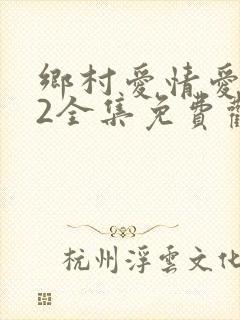 鄉村愛情愛
2全集免費觀
杭州浮雲文化